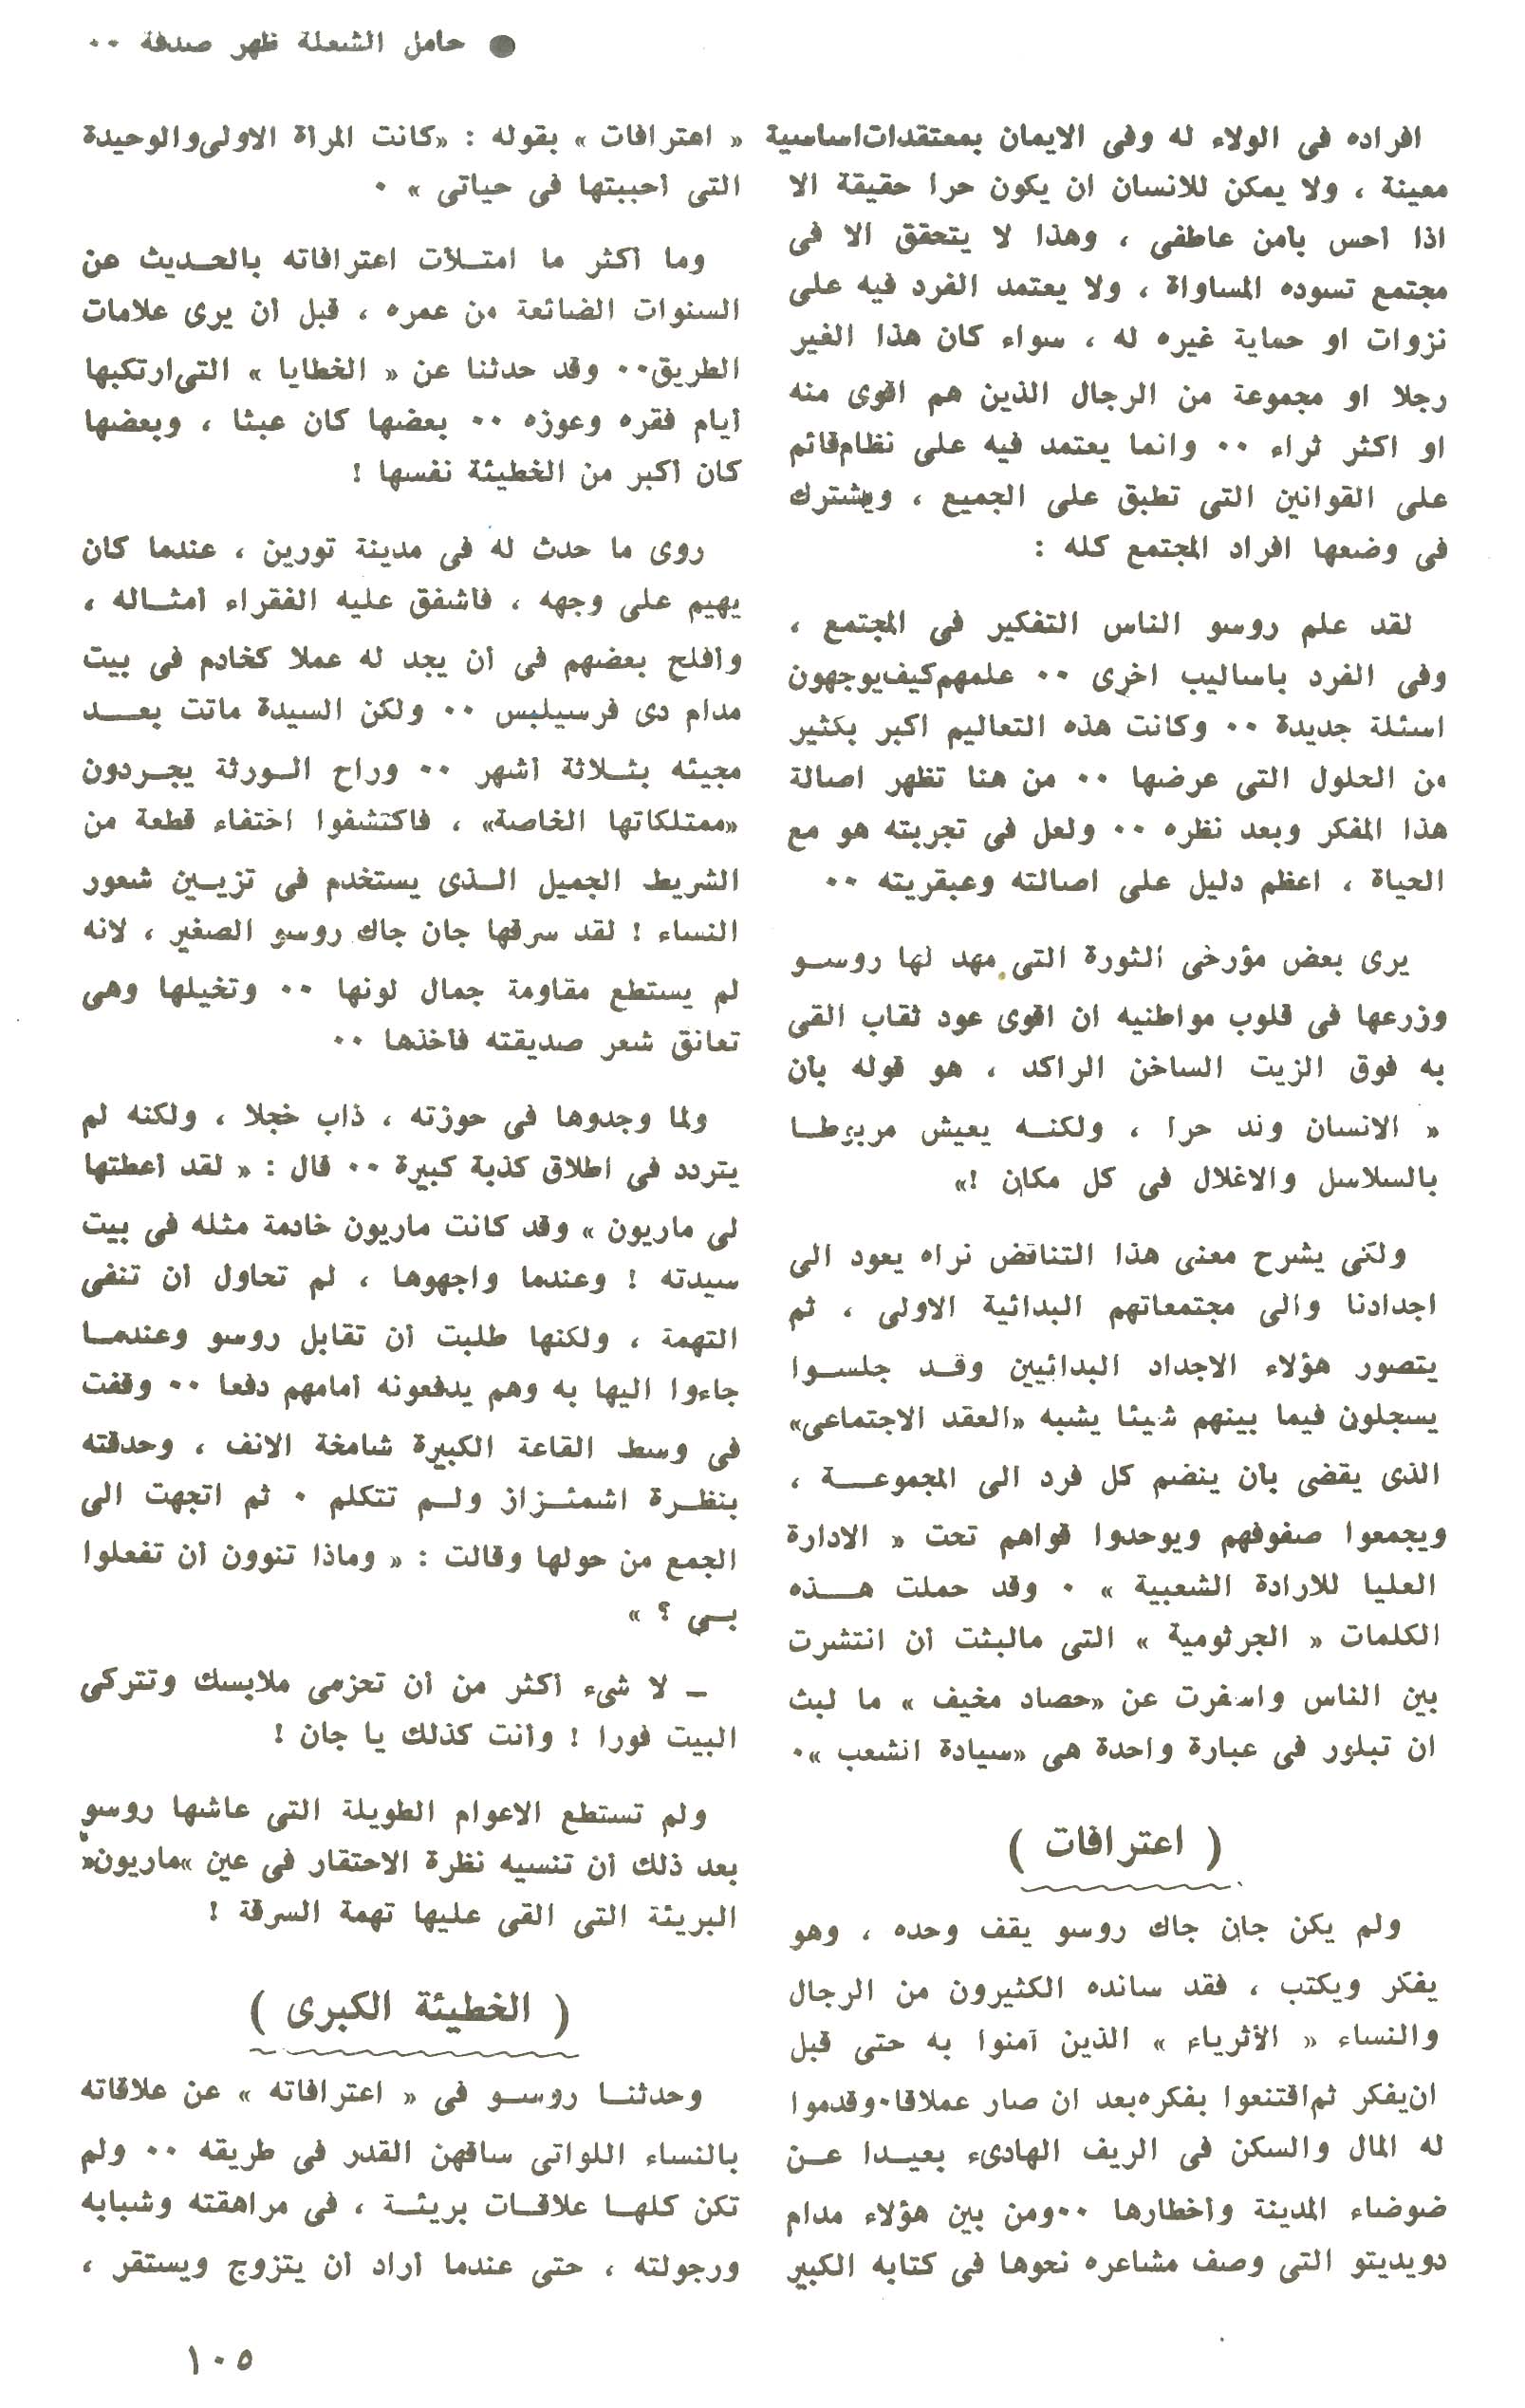 ● حامل الشعلة ظهر صدفة ٠٠
افراده فى الولاء له وفى الايمان بمعتقدات اساسية
معينة ، ولا يمكن للانسان ان يكون حرا حقيقة الا
اذا أحس بأمن عاطفى ، وهذا لا يتحقق الا فى
مجتمع تسوده المساواة ، ولا يعتمد الفرد فيه على
نزوات او حماية غيره له ، سواء كان هذا الغير
رجلا او مجموعة من الرجال الذين هم اقوى منه
او اكثر ثراء ٠٠ وانما يعتمد فيه على نظام قائم
على القوانين التى تطبق على الجميع ، ويشترك
فى وضعها افراد المجتمع كله :
لقد علم روسو الناس التفكير فى المجتمع ،
وفى الفرد باساليب اخرى ٠٠ علمهم كيف يوجهون
اسئلة جديدة ٠٠ وكانت هذه التعاليم اكبر بكثير
من الحلول التى عرضها ٠٠ من هنا تظهر اصالة
هذا المفكر وبعد نظره ٠٠ ولعل فى تجربته هو مع
الحياة ، اعظم دليل على اصالته وعبقريته ٠٠
يرى بعض مؤرخى الثورة التى مهد لها روسو
وزرعها فى قلوب مواطنيه ان اقوى عود ثقاب القى
به فوق الزيت الساخن الراكد ، هو قوله بأن
« الانسان ولد حرا ، ولكنه يعيش مربوطا
بالسلاسل والاغلال فى كل مكان !»
ولكى يشرح معنى هذا التناقض نراه يعود الى
اجدادنا والى مجتمعاتهم البدائية الاولى ، ثم
يتصور هؤلاء الاجداد البدائيين وقد جلسوا
يسجلون فيما بينهم شيئا يشبه «العقد الاجتماعى»
الذى يقضى بأن ينضم كل فرد الى المجموعة ،
ويجمعوا صفوفهم ويوحدوا قواهم تحت « الادارة
العليا للارادة الشعبية » ٠ وقد حملت هذه
الكلمات « الجرثومية » التى مالبثت أن انتشرت
بين الناس واسفرت عن «حصاد مخيف » ما لبث
ان تبلور فى عبارة واحدة هى «سيادة الشعب »٠
( اعترافات )
ولم يكن جان جاك روسو يقف وحده ، وهو
يفكر ويكتب ، فقد سانده الكثيرون من الرجال
والنساء « الأثرياء » الذين آمنوا به حتى قبل
ان يفكر ثم اقتنعوا بفكره بعد ان صار عملاقا٠ وقدموا
له المال والسكن فى الريف الهادىء بعيدا عن
ضوضاء المدينة وأخطارها ٠٠ومن بين هؤلاء مدام
دويديتو التى وصف مشاعره نحوها فى كتابه الكبير
« اعترافات » بقوله : «كانت المرأة الاولى والوحيدة
التى أحببتها فى حياتى » ٠
وما أكثر ما امتلأت اعترافاته بالحديث عن
السنوات الضائعة من عمره ، قبل أن يرى علامات
الطريق٠٠ وقد حدثنا عن « الخطايا » التى ارتكبها
أيام فقره وعوزه ٠٠ بعضها كان عبثا ، وبعضها
كان أكبر من الخطيئة نفسها !
روى ما حدث له فى مدينة تورين ، عندما كان
يهيم على وجهه ، فأشفق عليه الفقراء أمثاله ،
وأفلح بعضهم فى أن يجد له عملا كخادم فى بيت
مدام دى فرسيلبس ٠٠ ولكن السيدة ماتت بعد
مجيئه بثلاثة أشهر ٠٠ وراح الورثة يجردون
«ممتلكاتها الخاصة» ، فاكتشفوا اختفاء قطعة من
الشريط الجميل الذى يستخدم فى تزيين شعور
النساء ! لقد سرقها جان جاك روسو الصغير ، لانه
لم يستطع مقاومة جمال لونها ٠٠ وتخيلها وهى
تعانق شعر صديقته فأخذها ٠٠
ولما وجدوها فى حوزته ، ذاب خجلا ، ولكنه لم
يتردد فى اطلاق كذبة كبيرة ٠٠ قال : « لقد أعطتها
لى ماريون » وقد كانت ماريون خادمة مثله فى بيت
سيدته ! وعندما واجهوها ، لم تحاول أن تنفى
التهمة ، ولكنها طلبت أن تقابل روسو وعندما
جاءوا اليها به وهم يدفعونه أمامهم دفعا ٠٠ وقفت
فى وسط القاعة الكبيرة شامخة الانف ، وحدقته
بنظرة اشمئزاز ولم تتكلم ٠ ثم اتجهت الى
الجمع من حولها وقالت : « وماذا تنوون أن تفعلوا
بى ؟ »
– لا شىء أكثر من أن تحزمى ملابسك وتتركى
البيت فورا ! وأنت كذلك يا جان !
ولم تستطع الاعوام الطويلة التى عاشها روسو
بعد ذلك أن تنسيه نظرة الاحتقار فى عين «ماريون»
البريئة التى القى عليها تهمة السرقة !
( الخطيئة الكبرى )
وحدثنا روسو فى « اعترافاته » عن علاقاته
بالنساء اللواتى ساقهن القدر فى طريقه ٠٠ ولم
تكن كلها علاقات بريئة ، فى مراهقته وشبابه
ورجولته ، حتى عندما أراد أن يتزوج ويستقر ،
١٠٥